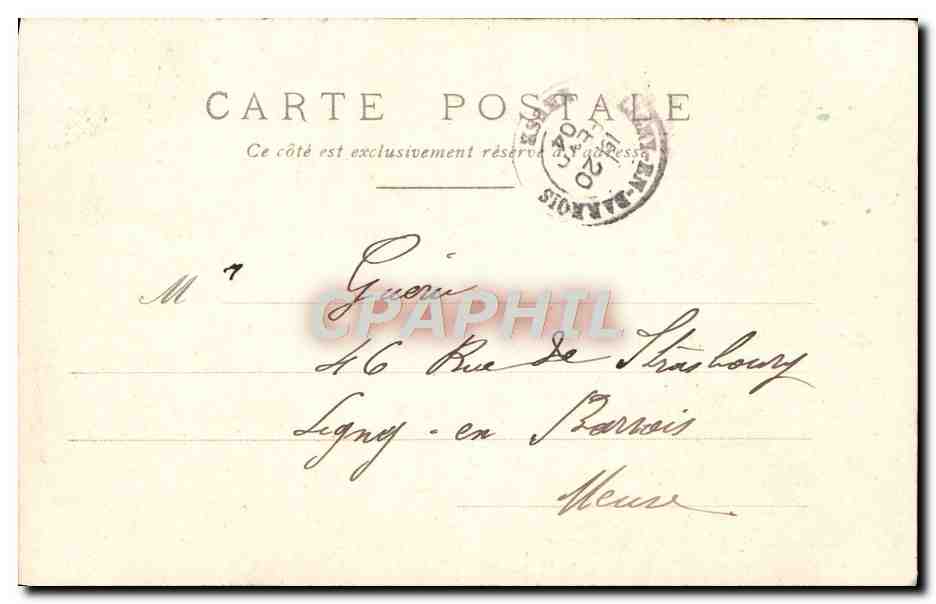 CARTE POSTALE
Ce côté est exclusivement réservé à l'adresse
LIGNY-EN-BARROIS
20
04
MEUSE
Mr Guérin
CPAPHIL
46 Rue de Strasbourg
Ligny-en Barrois
Meuse